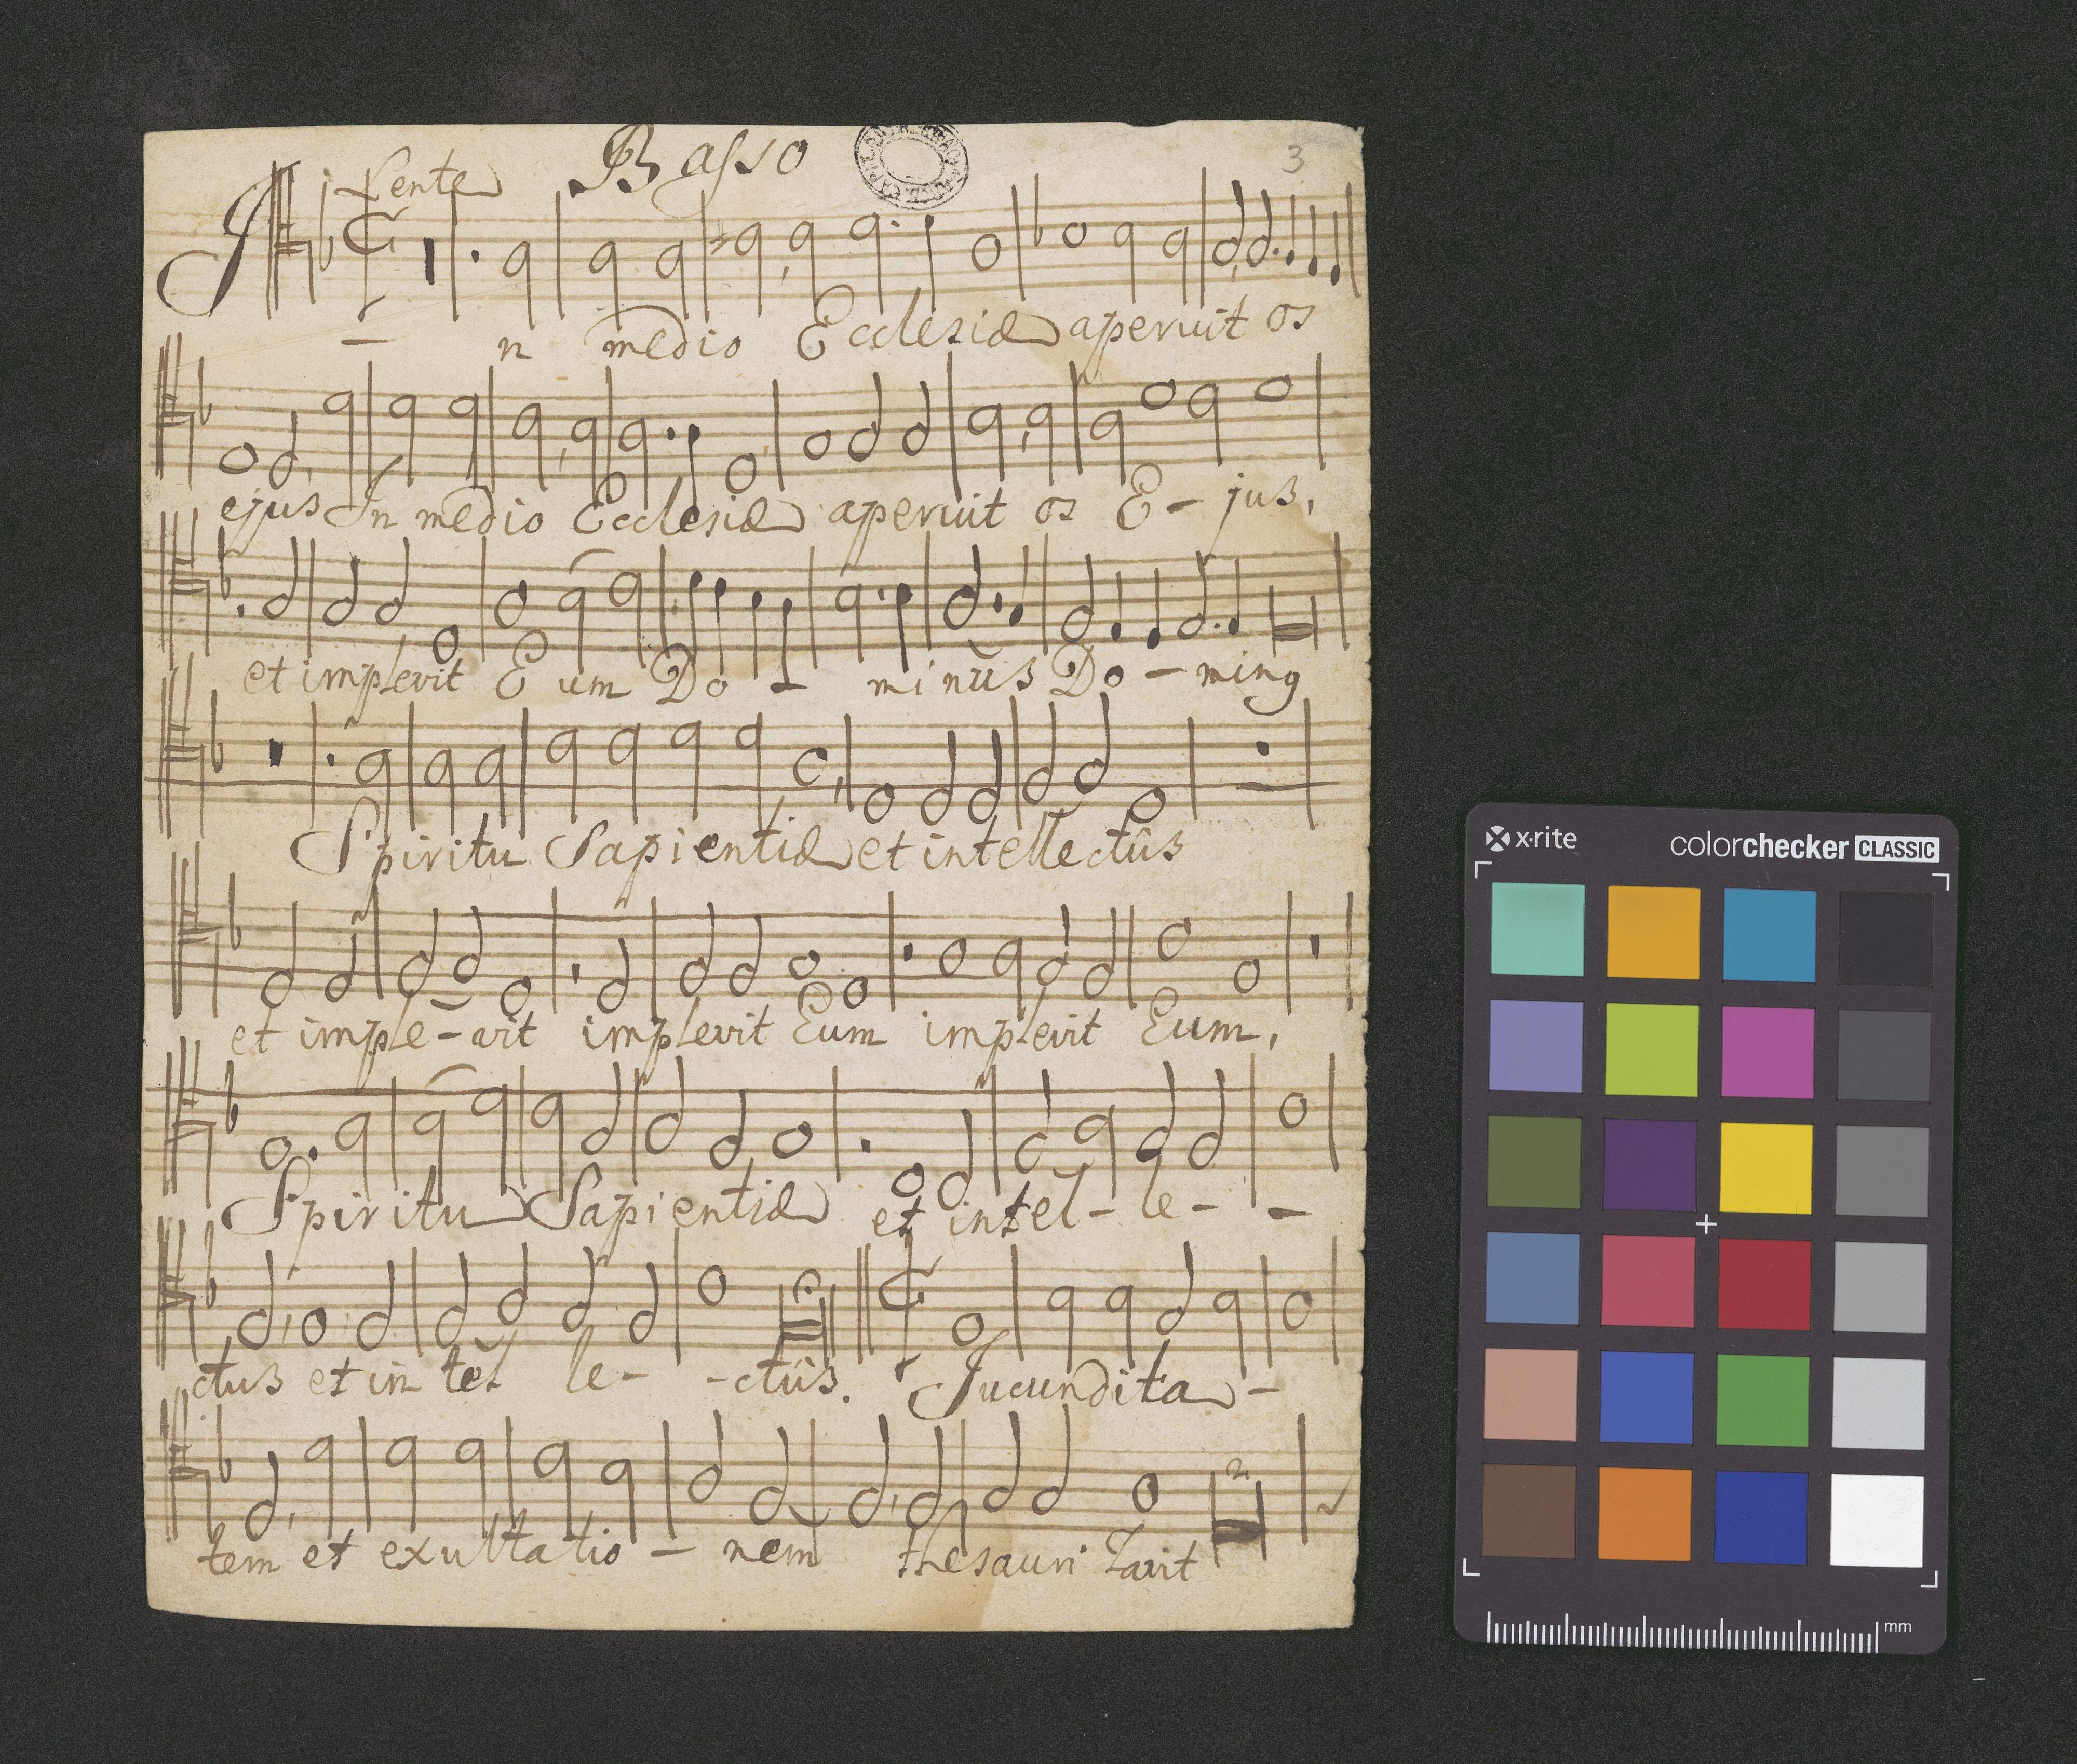 Basso
3
Lente
I - n medio Ecclesiæ aperuit os
ejus In medio Ecclesiæ aperuit os E - jus,
et implevit Eum Do - minus Do - ming
Spiritu Sapientiæ et intellectûs
et imple - vit implevit Eum implevit Eum,
Spiritu Sapientiæ et intel - le - -
ctus et in tel le - - ctûs. Jucundita -
tem et exultatio - nem thesauri Zavit
x·rite
colorchecker CLASSIC
mm